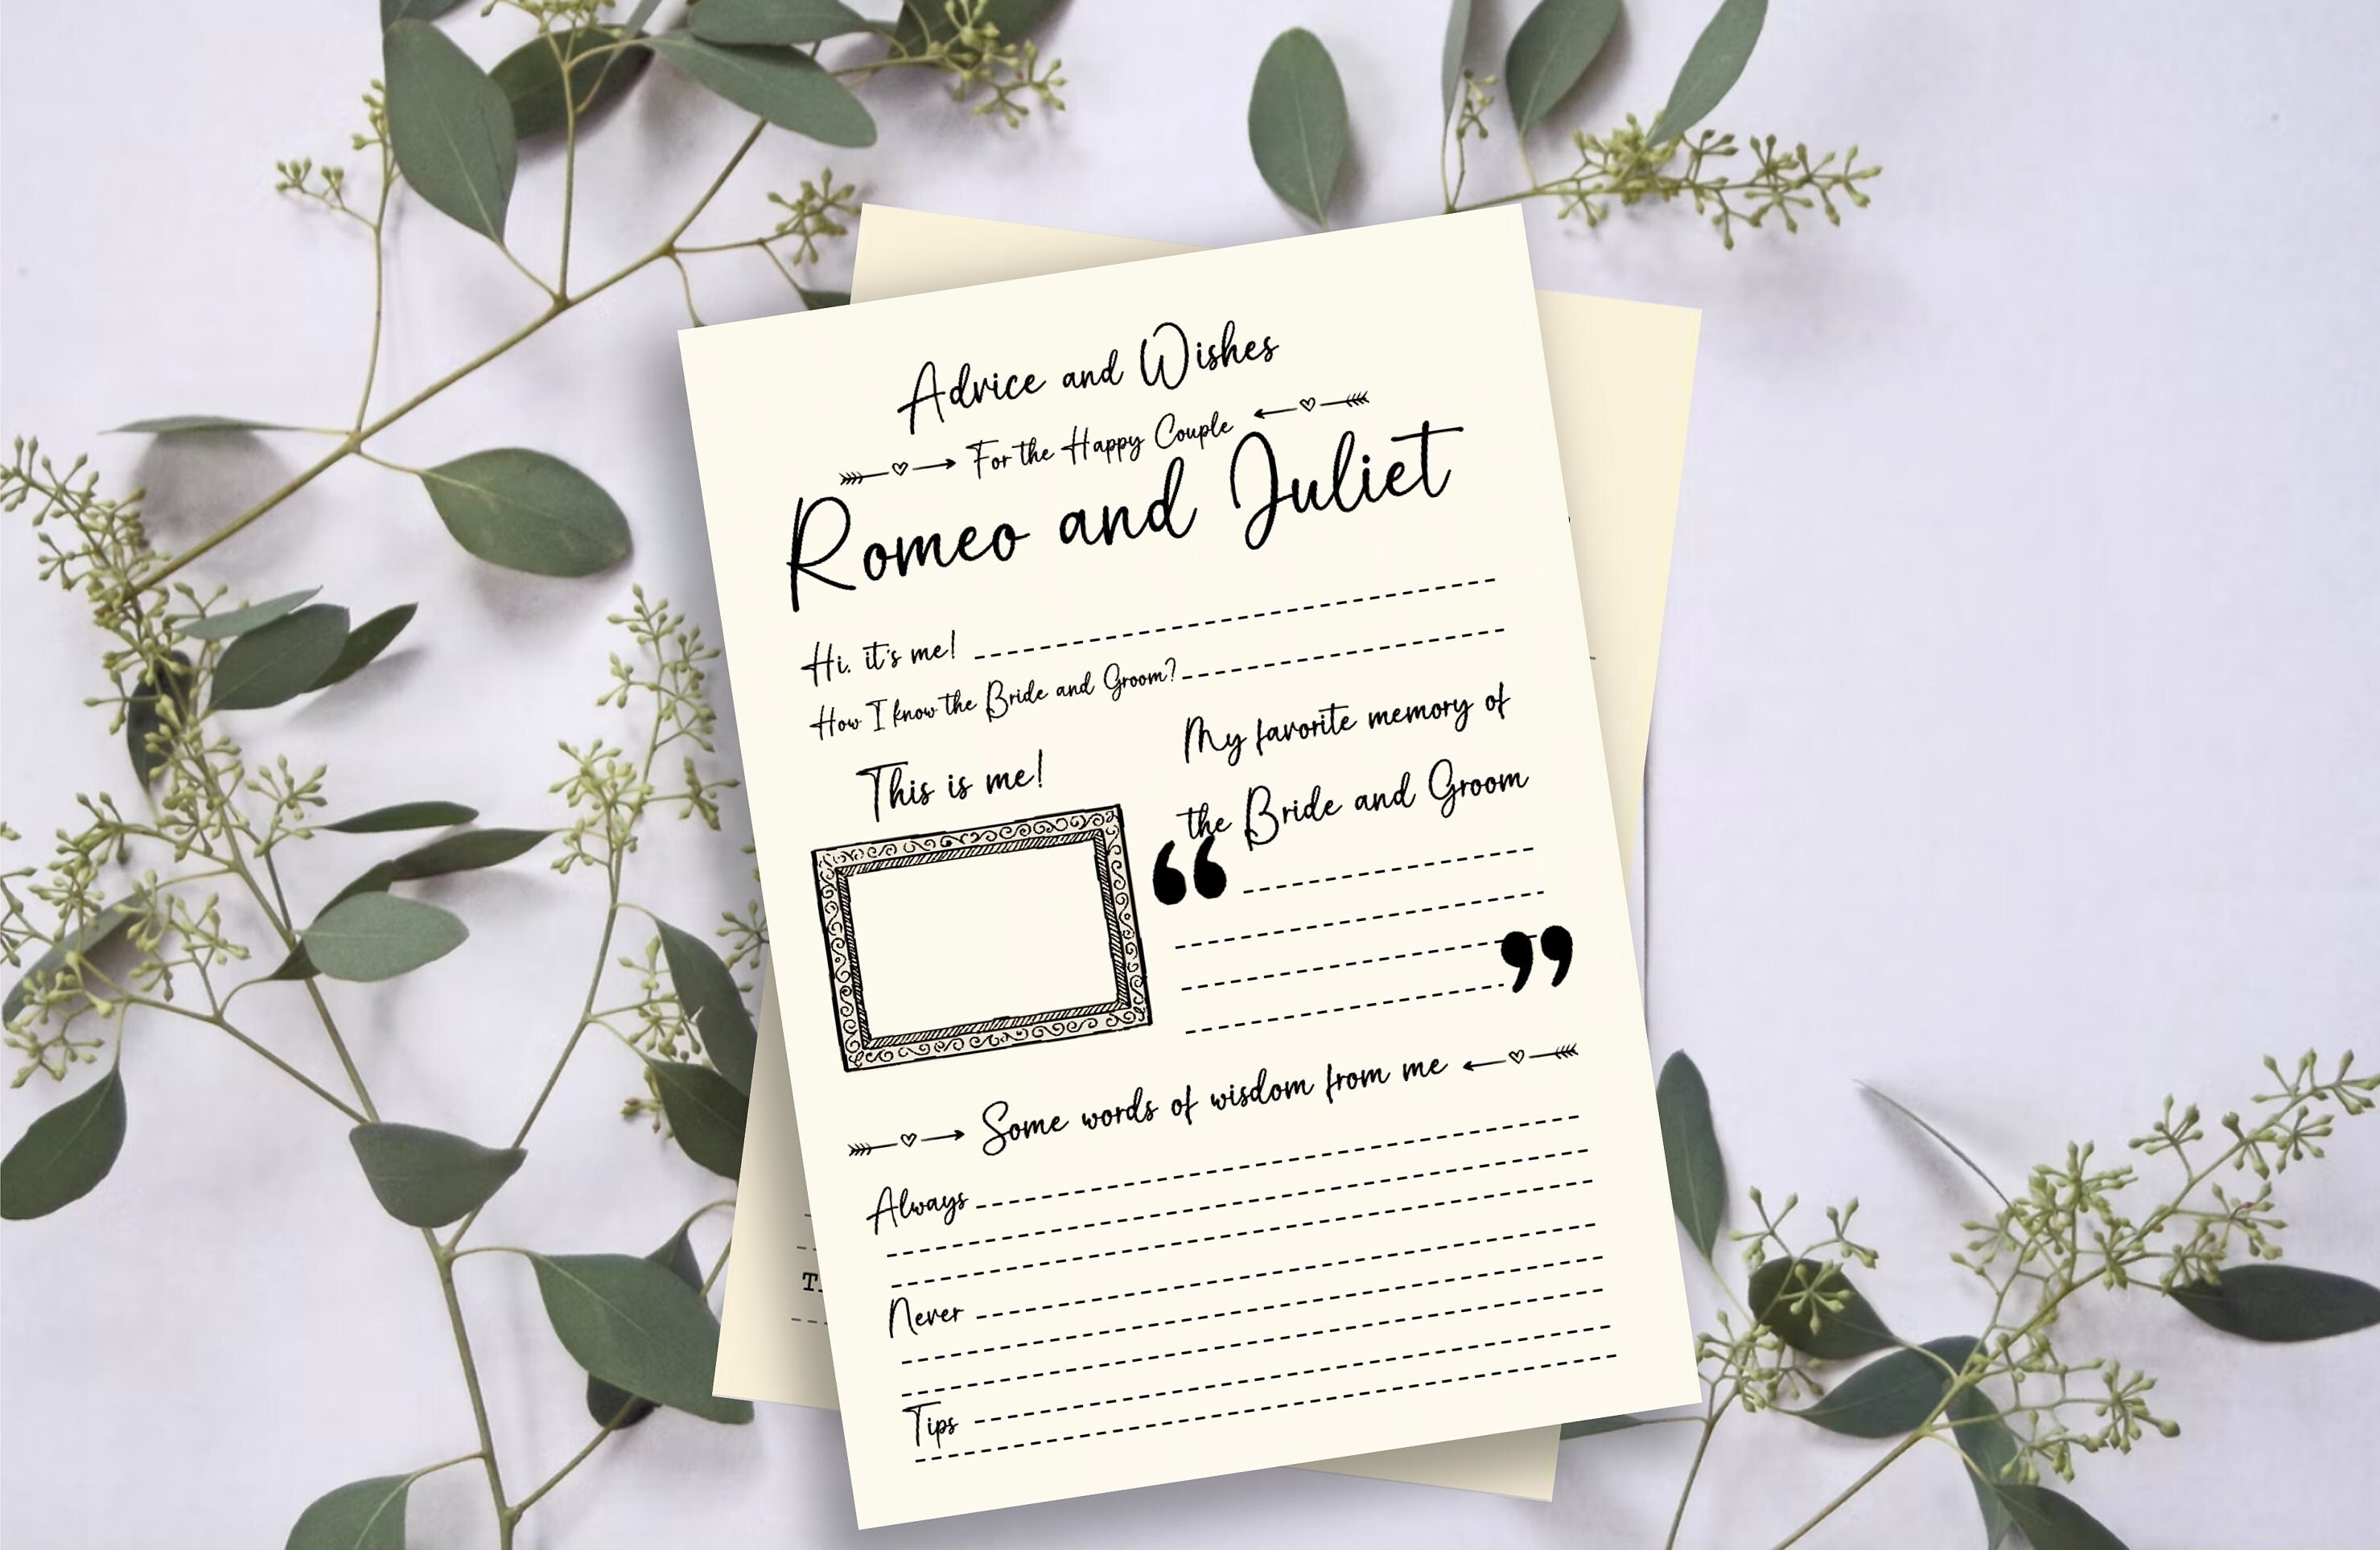 Advice and Wishes
For the Happy Couple
Romeo and Juliet
Hi, it's me!
How I know the Bride and Groom?
This is me!
My favorite memory of
the Bride and Groom
“
”
Some words of wisdom from me
Always
Never
Tips